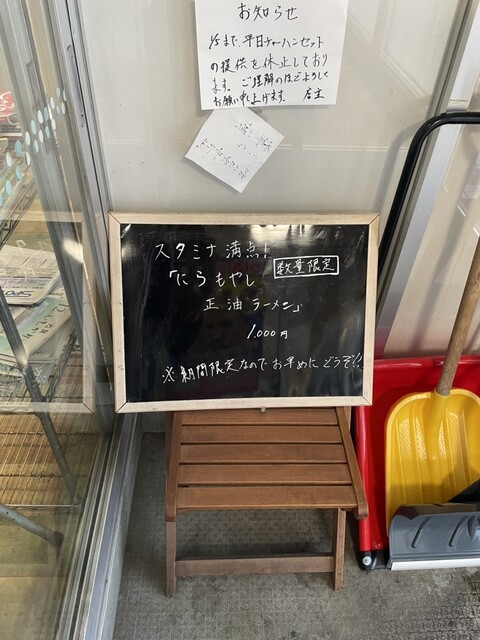 お知らせ
1/5まで、平日チャーハンセット
の提供を休止しており
ます。ご理解のほどよろしく
お願い申し上げます。 店主
スタミナ満点!
数量限定
「にらもやし
正油ラーメン」
1,000円
※期間限定なのでお早めにどうぞ!!